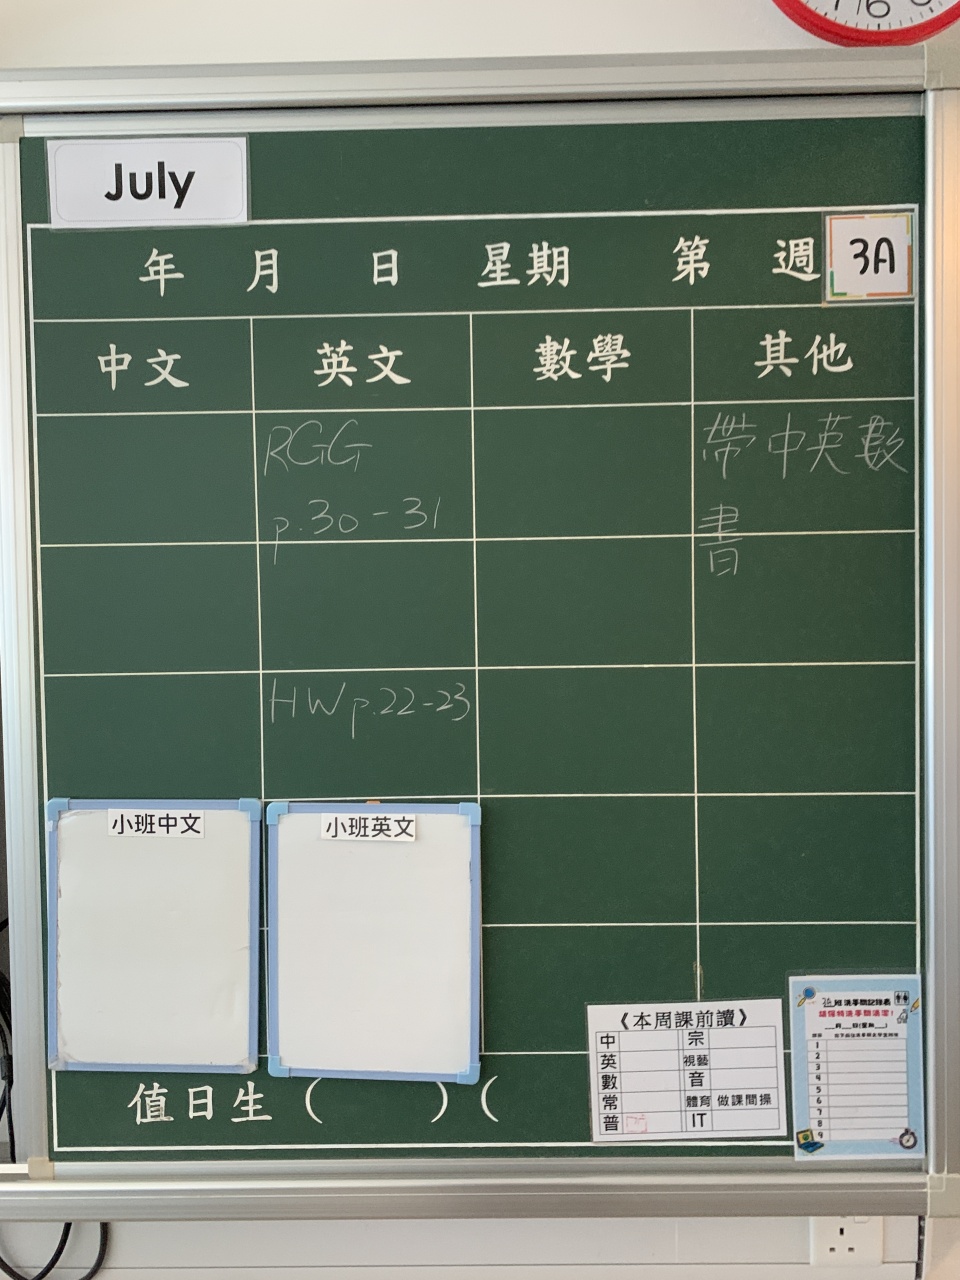 July
年 月 日 星期 第 週 3A
中文 英文 數學 其他
RGG
p.30-31
帶中英數
書
HW p.22-23
小班中文
小班英文
《本周課前讀》
中 宗
英 視藝
數 音
常 體育 做課間操
普 IT
值日生 ( ) (
1
2
3
4
5
6
7
8
9